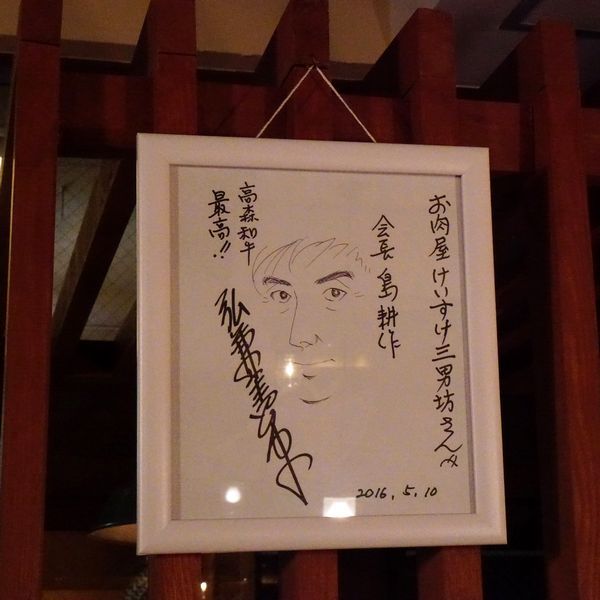 お肉屋 けいすけ三男坊さんへ
会長 島耕作
高森和牛
最高!!
弘兼憲史
2016.5.10